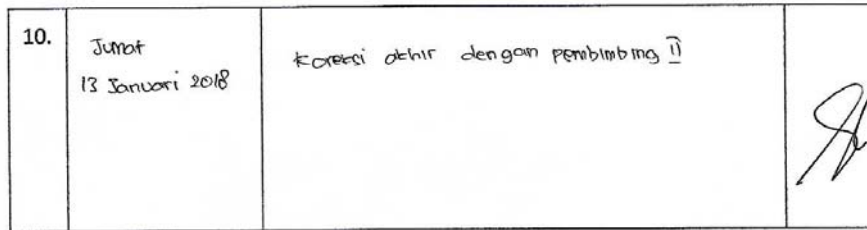 10.
Jumat
13 Januari 2018
Koreksi akhir dengan pembimbing II